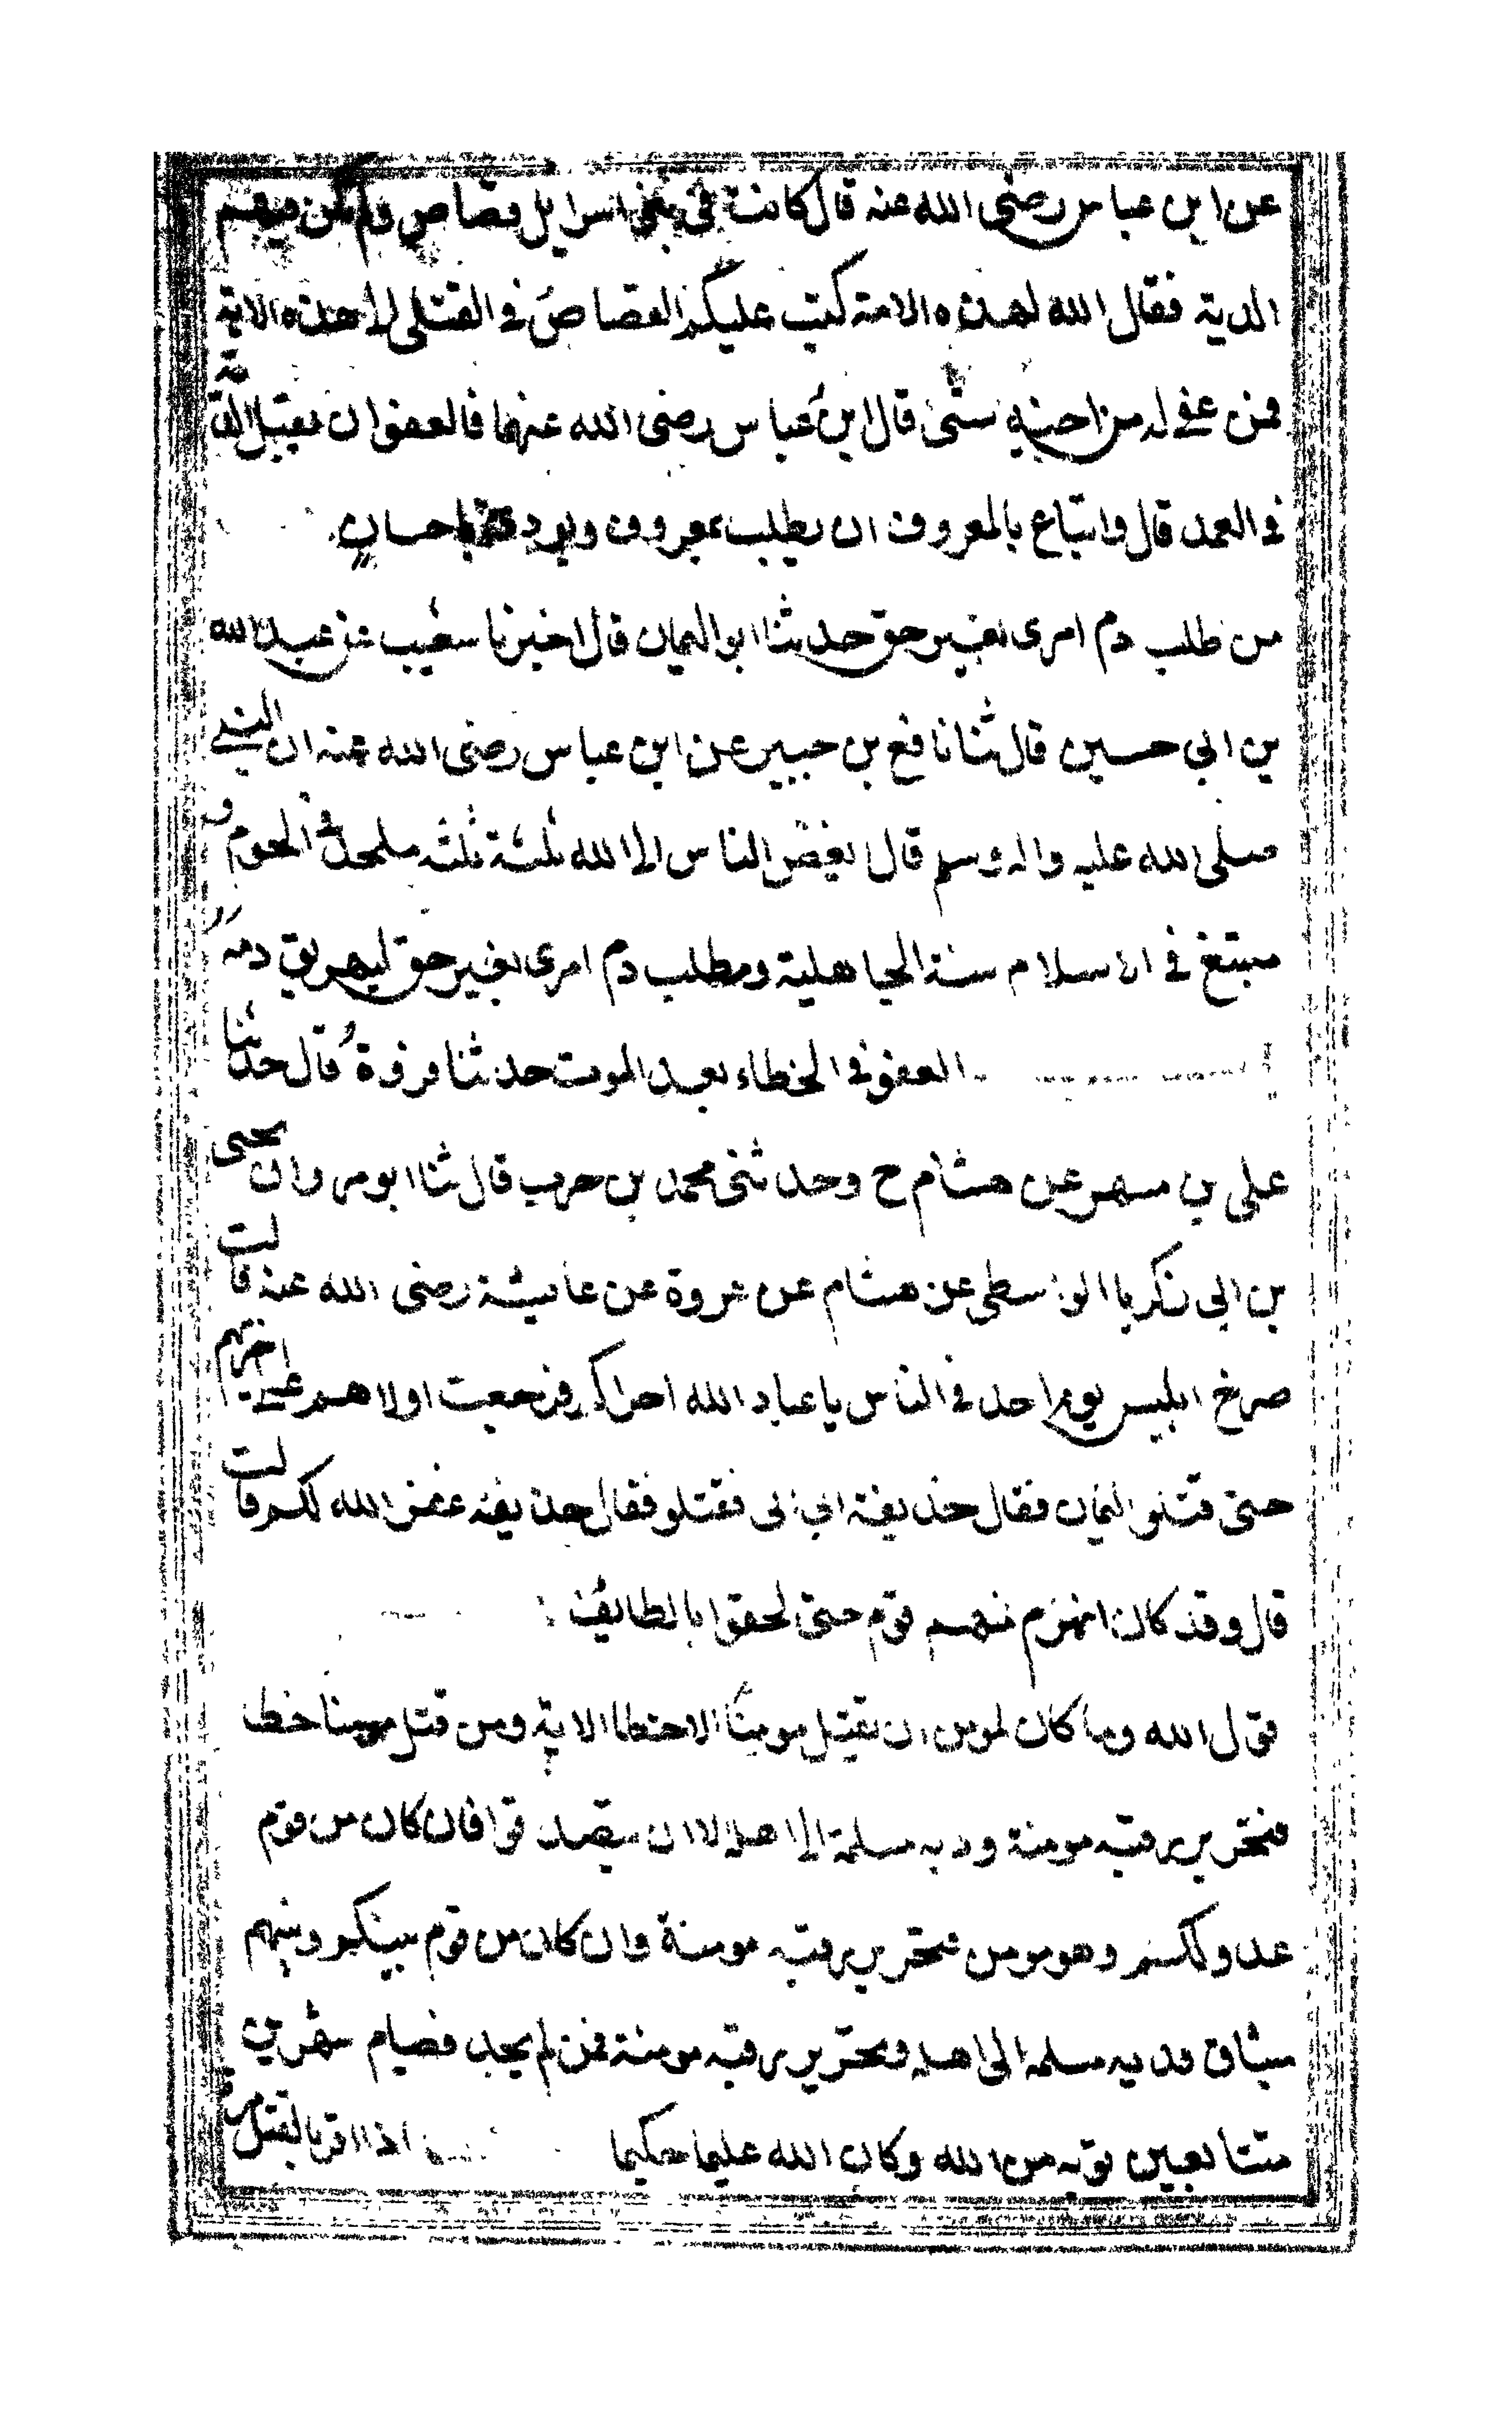 عن ابن عباس رضى الله عنه قال كانت فى بنى اسرايل قصاص ولم تكن فيهم
الدية فقال الله لهذه الامة كتب عليكم القصاص فى القتلى الى هذه الاية
فمن عفى له من اخيه شئ قال ابن عباس رضى الله عنهما فالعفو ان يقبل الدية
فى العمد قال واتباع بالمعروف ان يطلب بمعروف ويودى باحسان
من طلب دم امرى بغير حق حدثنا ابو اليمان قال اخبرنا شعيب عن عبد الله
بن ابى حسين قال ثنا نافع بن جبير عن ابن عباس رضى الله عنه ان النبى
صلى الله عليه واله وسلم قال ابغض الناس الى الله ثلثة ثلثه ملحد فى الحرم و
مبتغ فى الاسلام سنة الجاهلية ومطلب دم امرى بغير حق ليهريق دمه
العفو فى الخطاء بعد الموت حدثنا فروة قال حدثنا
على بن مسهر عن هشام ح وحدثنى محمد بن حرب قال ثنا ابو مروان يحيى
بن ابى زكريا الواسطى عن هشام عن عروة عن عايشة رضى الله عنه قالت
صرخ ابليس يوم احد فى الناس يا عباد الله اخراكم فرجعت اولاهم على اخريهم
حتى قتلو اليمان فقال حذيفة ابى ابى فقتلو فقال حذيفه غفر الله لكم قالت
قال وقد كان انهزم منهم قوم حتى لحقوا بالطايف
قول الله وما كان لمومن ان يقتل مومنا الا خطا الاية ومن قتل مومنا خطا
فتحرير رقبه مومنة وديه مسلمة الى اهله الا ان يصدقوا فان كان من قوم
عدو لكم وهو مومن فتحرير رقبه مومنة وان كان من قوم بينكم وبينهم
ميثاق فديه مسلمه الى اهله وتحرير رقبه مومنة فمن لم يجد فصيام شهرين
متتابعين توبه من الله وكان الله عليما حكيما اذا اقر بالقتل مرة